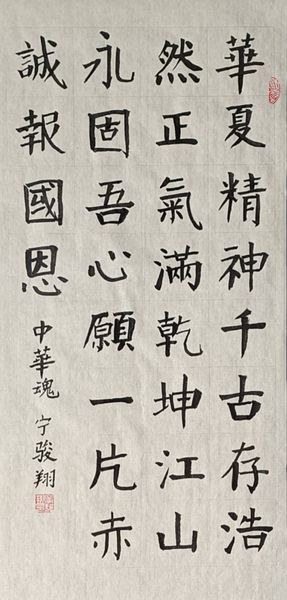 華夏精神千古存浩
然正氣滿乾坤江山
永固吾心願一片赤
誠報國恩
中華魂 宁骏翔